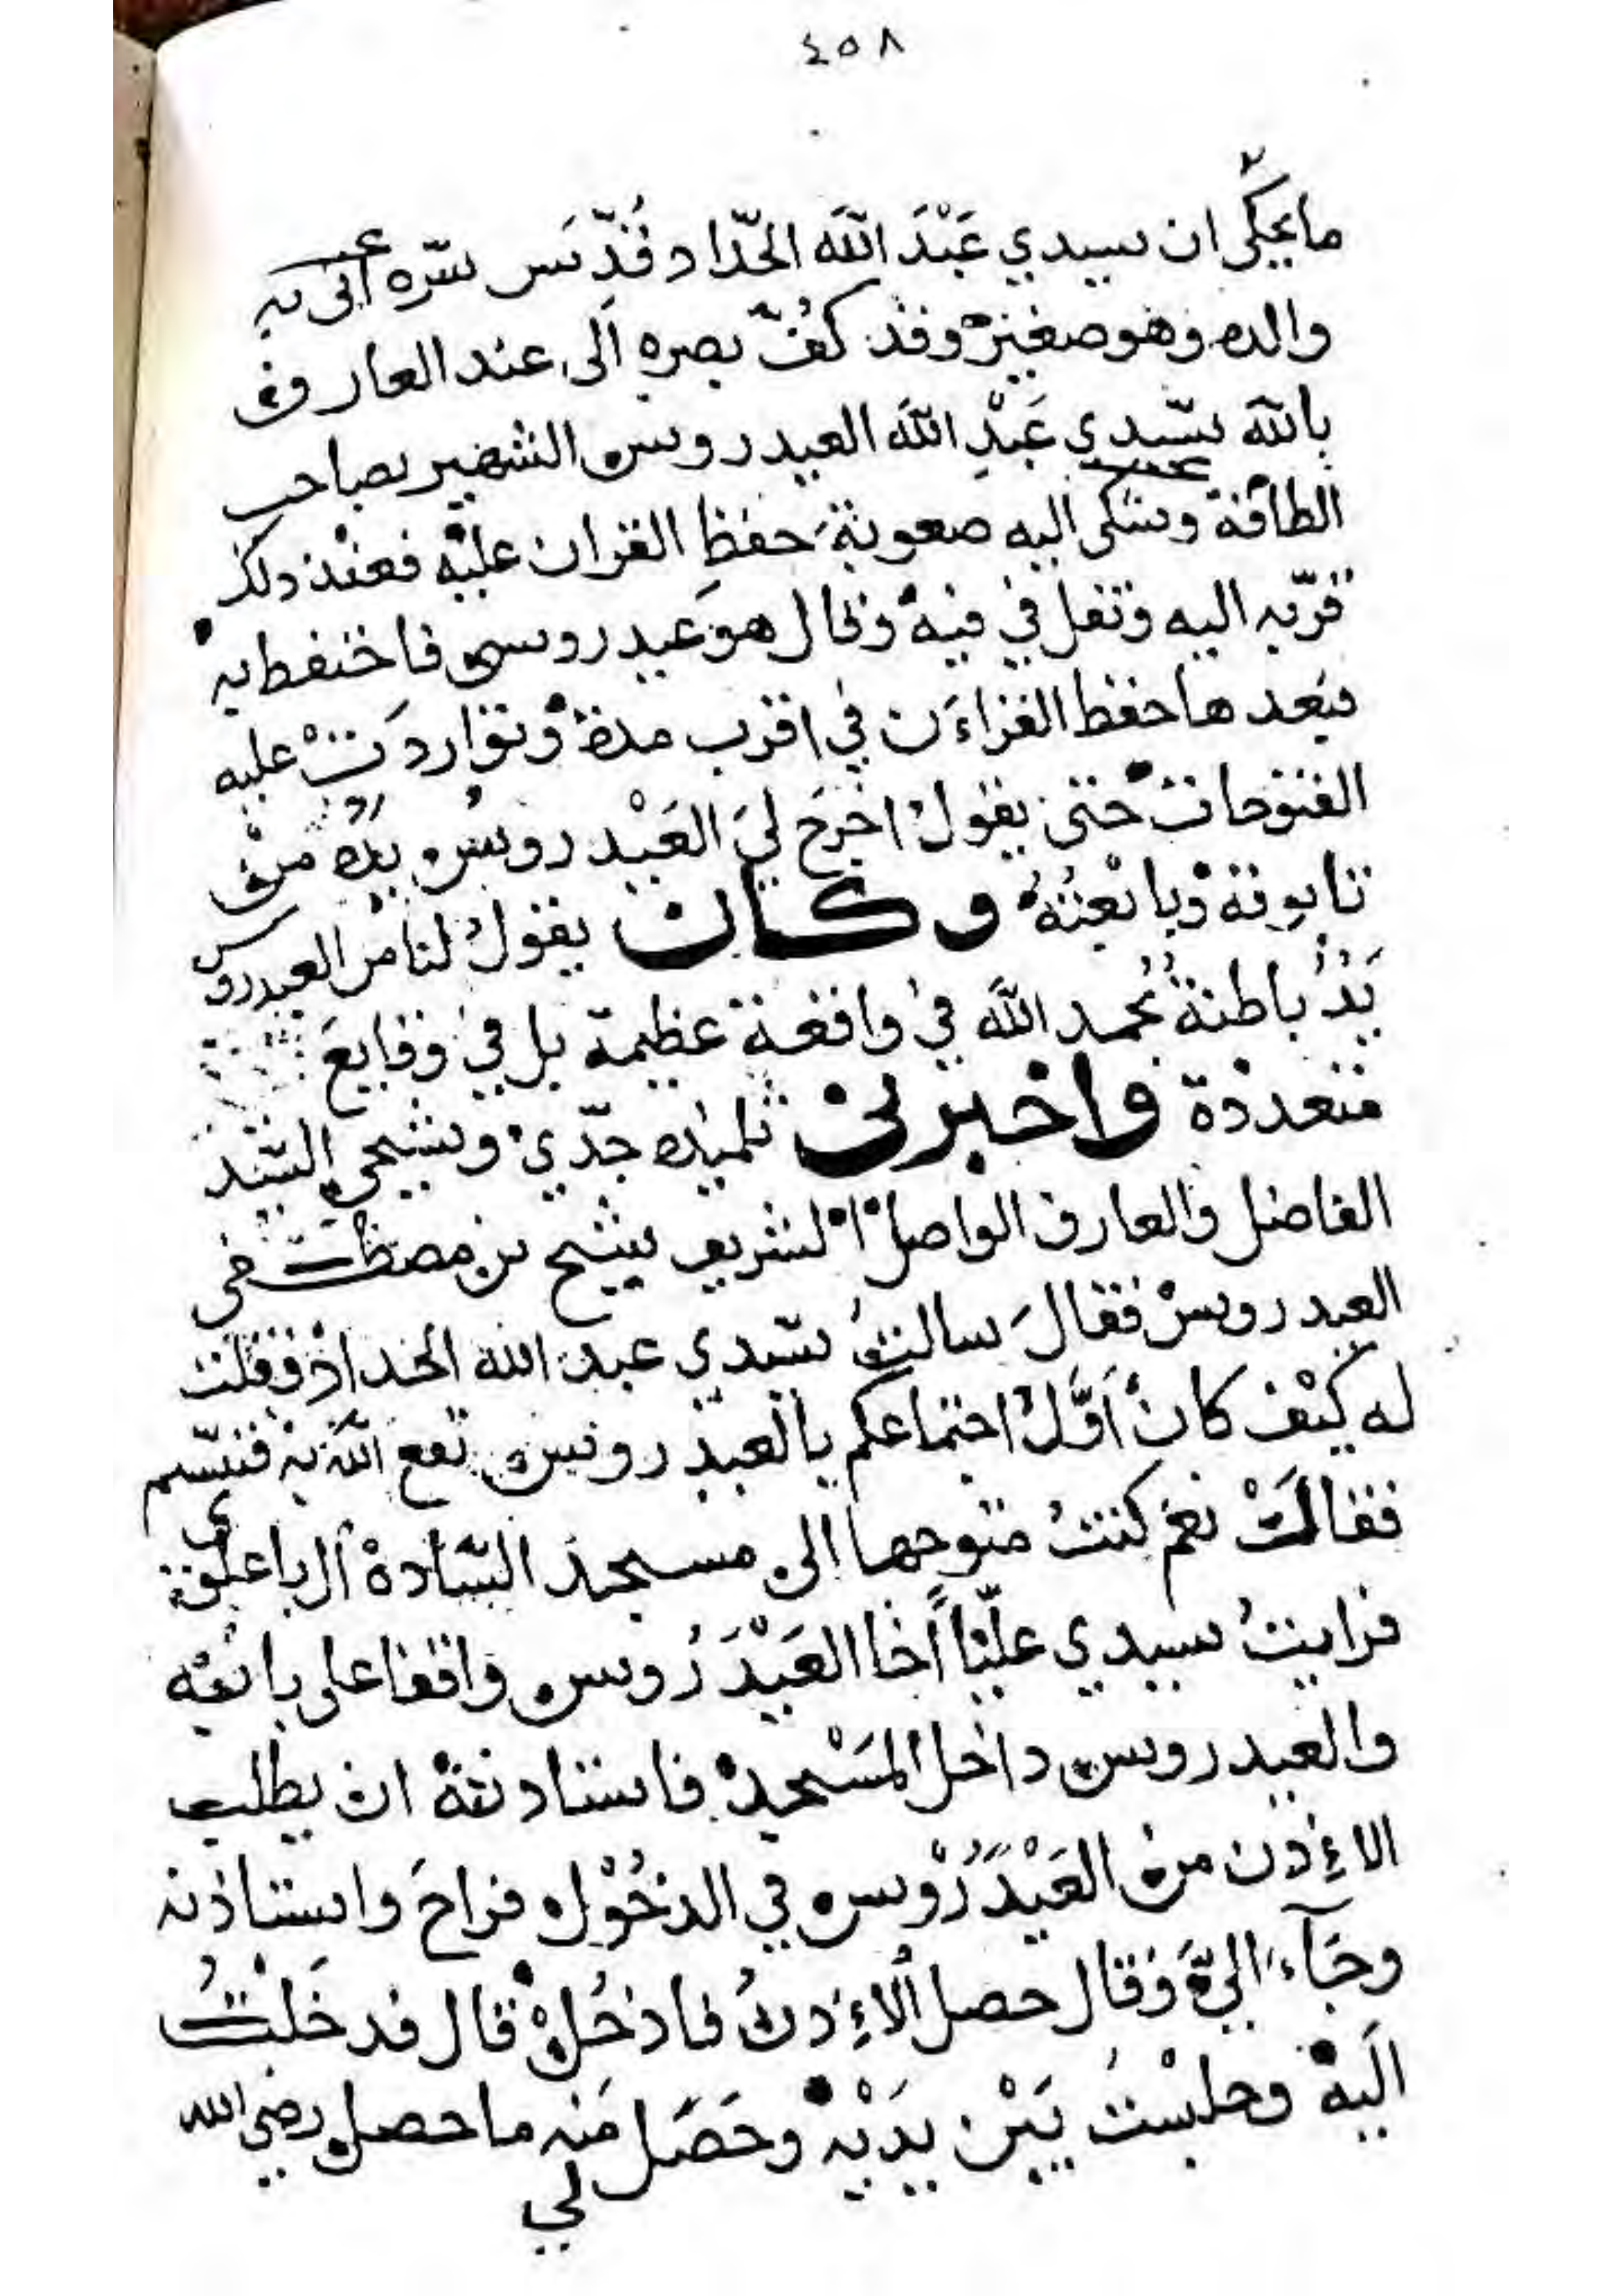 ٤٥٨
ما يحكى ان سيدي عَبْدَ اللّه الحدّاد قُدّسَ سرّه أتى به
والده وهو صغير وقد كُفّ بصره الى عند العارف
باللّه سيّدي عَبْدِ اللّه العيدروس الشهير بصاحب
الطاقة وشكى اليه صعوبة حفظِ القران عليْه فعند ذلك
قرّبه اليه وتفل في فيه وقال هو عيدروسي فاختفط به
بعدها حفظ القراءَن في اقرب مدة وتواردَتْ عليه
الفتوحات حتى يقول اخرَج ليَ العَيْدروس يدَه من
تابوته وبايعْتُهُ وكان يقول لنا من العيدروس
يَدٌ باطنة بحمد اللّه في واقعة عظيمة بل في وقايعَ
متعددة واخبرني تلميذه جدّي وشيخي السيد
الفاضل والعارف الواصل الشريف شيخ بن مصطفى
العيدروس فقالَ سالتُ سيّدي عبد الله الحداد فقلت
له كيْف كانَ أوّلُ اجتماعكم بالعيدروس نفع اللّه به فتبسّم
فقالَ نعم كنتُ متوجها الى مسجد السّادة آل باعلوي
فرايتُ سيدي عليّاً أخا العَيْدَرُوس واقفا على بابه
والعيدروس داخل المَسْجد فاستاذنته ان يطلب
الاءِذن من العَيْدَرُوس في الدخُوْل فراحَ واستاذنه
وجَآءَ اليّ وقال حصل الاءِذنُ فادخُلْ قال فدخَلْتُ
اليه وجلسْتُ بَيْن يدَيْه وحَصَل مَنه ما حصل رضي الله
لي